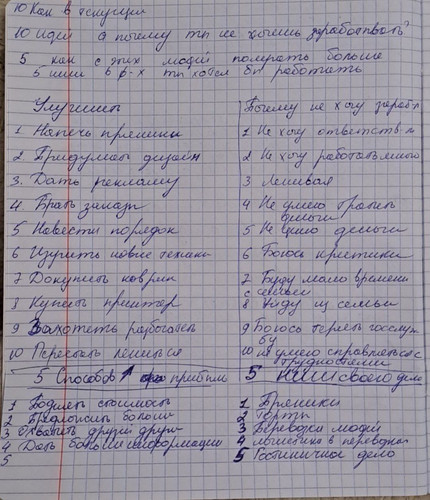 10 Как в текущем
10 идей а почему ты не хочешь зарабатывать?
5 как с этих людей получать больше
5 ниш в к-х ты хотел бы работать
Улучшить
1 Напечь пряники
2 Придумать дизайн
3. Дать рекламу
4 Брать заказы
5 Навести порядок
6 Изучить новые техники
7 Докупить коврик
8 Купить принтер
9 Захотеть работать
10 Перестать лениться
Почему не хочу зараб-ть
1 Не хочу ответств-ти
2 Не хочу работать много
3 Ленивая
4 Не умею тратить деньги
5 Не ценю деньги
6 Боюсь критики
7 Буду мало времени с семьей
8 Уйду из семьи
9 Боюсь терять госслужбу
10 не умею справляться с трудностями
5 Способов ↑ прибыль
1 Поднять стоимость
2 Предложить больше
3 Охватить другой
4 Дать больше информации
5
5 ниш своего дела
1 Пряники
2 Торты
3 Перевозка людей
4 логистика в перевозках
5 Гостиничное дело